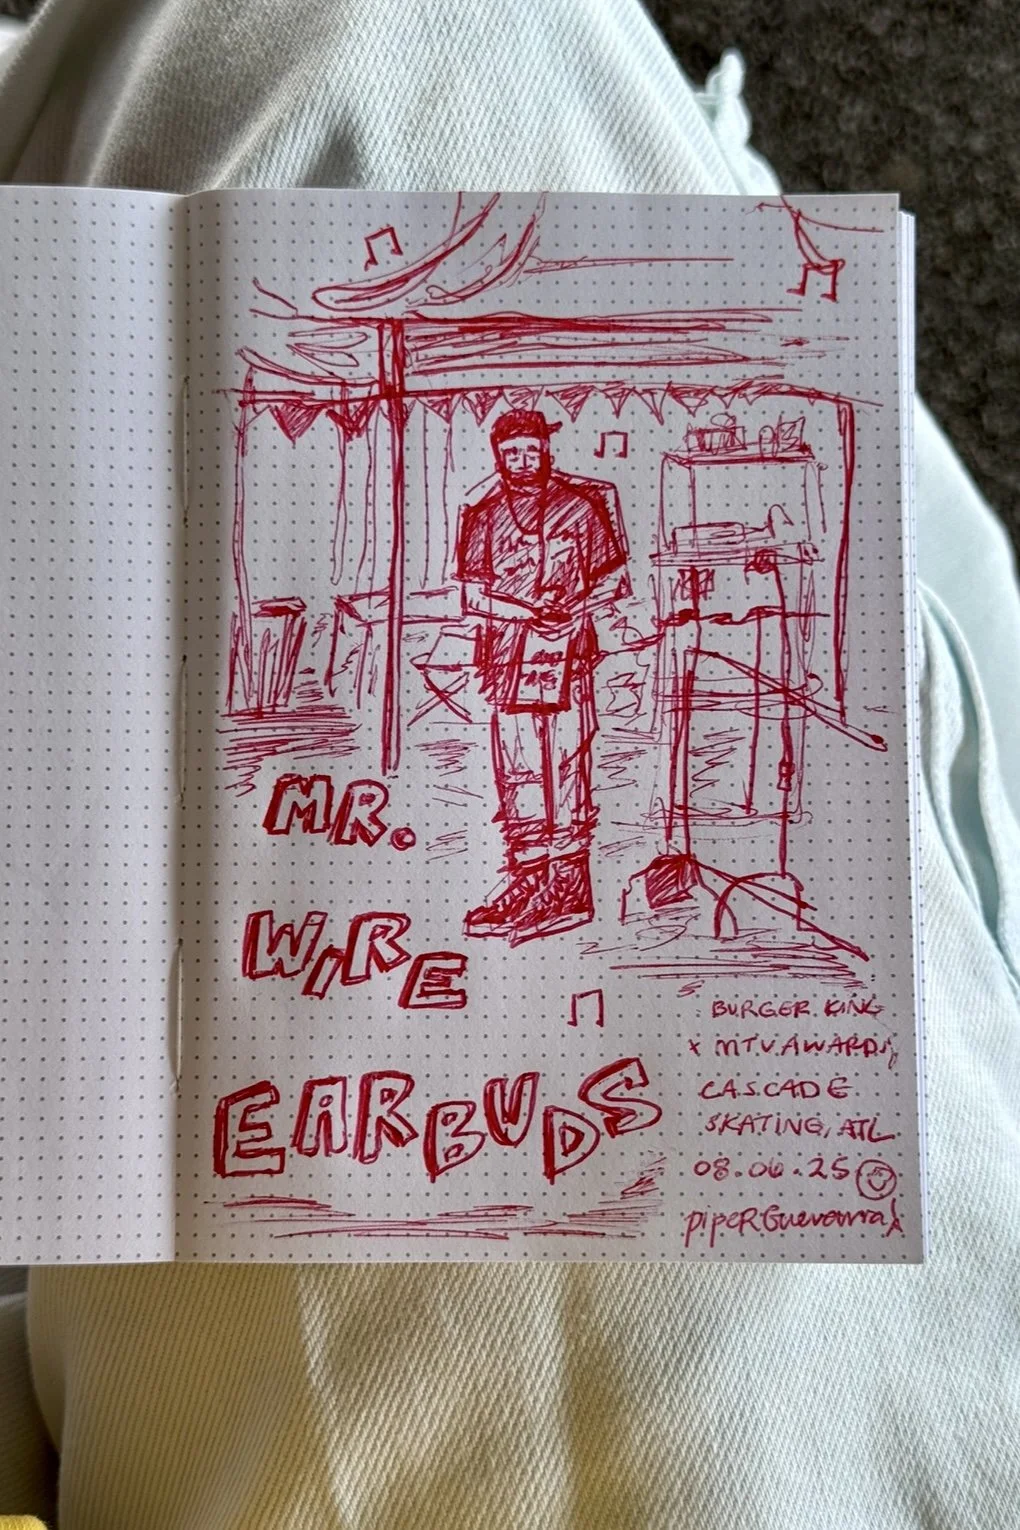 MR.
WIRE
EARBUDS
BURGER KING
x MTV AWARDS,
CASCADE
SKATING, ATL
08.06.25
pipeRGuevarra